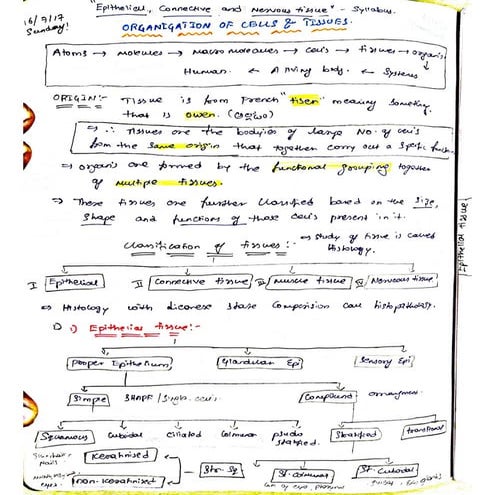 "Epithelial, Connective and Nervous tissue" - Syllabus.
16/7/17
Sunday!
ORGANIGATION OF CELLS & TISSUES.
Atoms → molecules → Macromolecules → Cells → tissues → organs
Human ← A living body ← Systems
ORIGIN:- Tissue is from French "tiser" meaning something
that is owen.
⇒ ∴ Tissues are the bodyies of large No. of cells
from the same origin that together carry out a specific function.
⇒ organs are formed by the functional grouping together
of multiple tissues.
⇒ These tissues are further classified based on the size,
shape and functions of those cells present in it.
Classification of tissues:- → study of tissue is called
Histology.
Epithelial tissue
I Epithelial II Connective tissue III Muscle tissue IV Nervous tissue
⇒ Histology with disease state composition call histopathology.
1) Epithelial tissue:-
Proper Epithelium Glandular Epi Sensory Epi
Simple SHAPE / Single cells Compound arrangment
Squamous Cuboidal Ciliated Columnar psudo Stratified transitional
statified.
Keratinised
non-keratinised Str. Sq St. Columnar St. Cuboidal